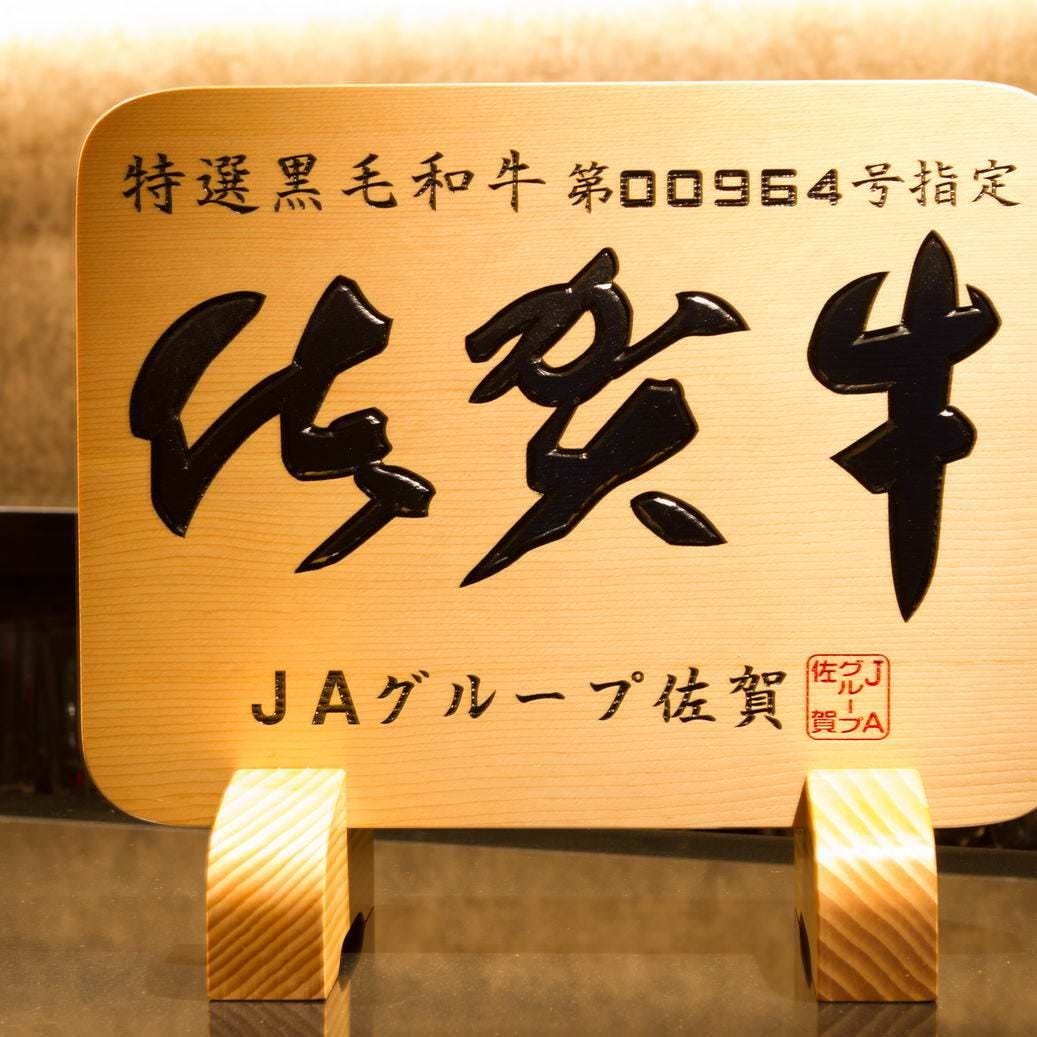 特選黒毛和牛 第00964号指定
佐賀牛
JAグループ佐賀
JA
グループ
佐賀